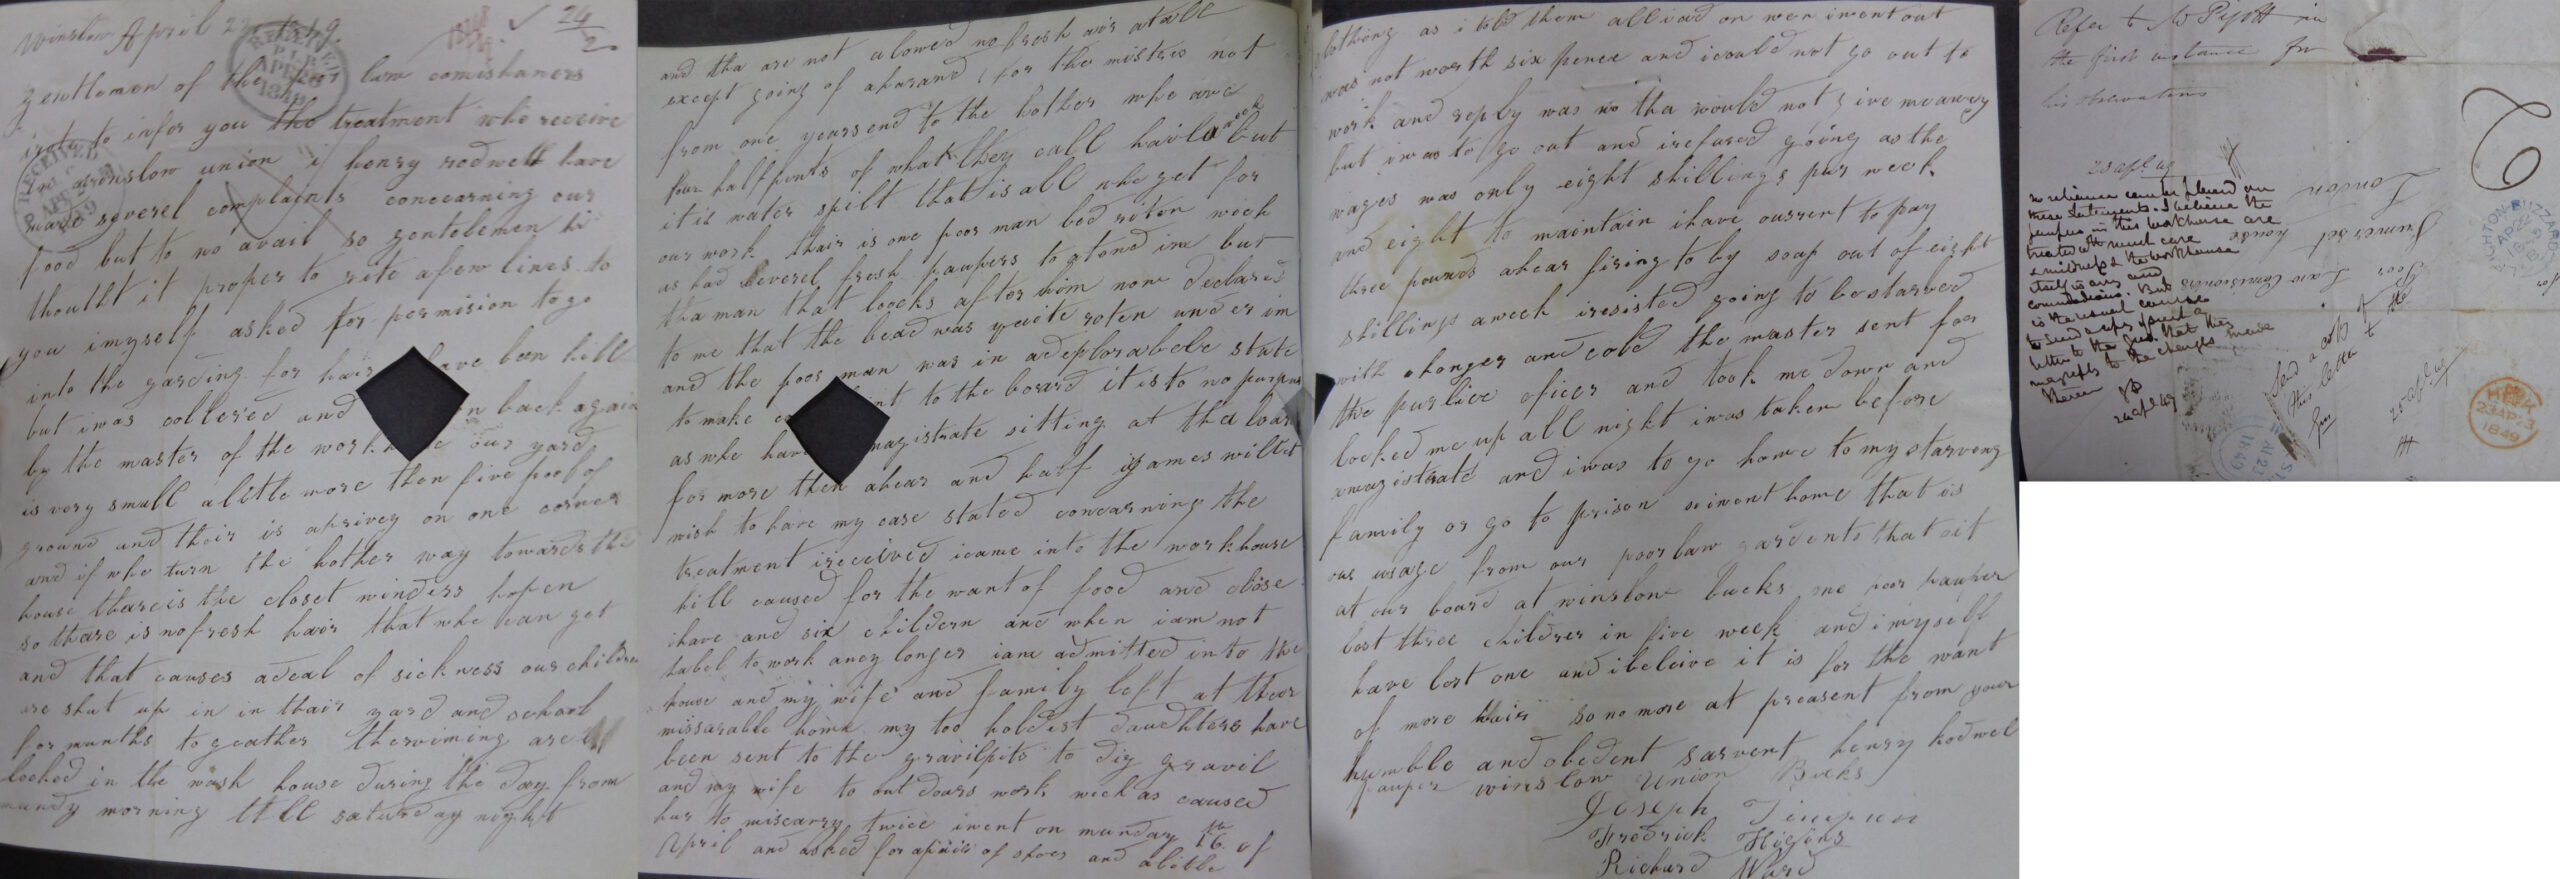 Winslow April 22 1849.
24/2
RECEIVED
APR 1849
gentlemen of the poor law comishaners
irote to infor you the treatment whe receive
in winslow union i henry rodwell have
made severel complaints concearning our
food but to no avail so gentelemen hi
thoutht it proper to rite afew lines to
you imyself asked for permision to go
into the garding for hair have been hill
but iwas collered and back again
by the master of the workhouse our yard
is very small alittle more then five pool of
ground and their is aprivey on one corner
and if whe turn the hother way towards the
house thare is the closet winders hopen
so thare is no fresh hair that whe can get
and that causes adeal of sickness our children
are shut up in in thair yard and school
for munths togeather the wiming are all
locked in the wash house during the day from
mundy morning till saturday night
and tha are not alowed no fresh air atall
except going of aharand for the mistres not
from one years end to the hother whe are
four halfpints of what they call hail a week but
it is water spilt that is all whe get for
our work thair is one poor man bed riten wich
as had severel fresh paupers to atend im but
tha man that loocks after him now declared
to me that the bead was queite roten under im
and the poor man was in adeplorabele state
to make to the board it is to no purpus
as whe have magistrate sitting at tha board
for more then ahear and half
wish to have my case stated concearning the
treatment ireceived icame into the workhouse
hill caused for the want of food and close
ihave and six childern and when iam not
habel to work aney longer iam admitted into the
house and my wife and family left at theor
missarable home my too holdist daughters have
been sent to the gravilpits to dig gravil
and my wife to out doars work wich as caused
hur to miscarry twice iwent on munday 16th of
April and asked for apair of shoes and alitle
clothing as i told them all iad on wen iwent out
was not worth six pence and icould not go out to
work and reply was no tha would not give me aney
but iwas to go out and irefused going as the
wages was only eight shillings pur week
and eight to maintain ihave ourrent to pay
three pounds ahear firing to by soap out of eight
shillings aweek iresisted going to be starved
with hunger and cold the master sent for
the purlice oficer and took me down and
locked me up all night iwas taken before
amagistrate and iwas to go home to my starveng
family or go to prison so iwent home that is
our usage from our poor law gardents that cit
at our board at winslow bucks one poor pauper
lost three childrer in five week and imyself
have lost one and ibeleive it is for the want
of more hair so no more at preasent from your
humble and obedent sarvent henry hodwel
pauper winslow Union Bucks
Joseph Timpson
Fredrick Higins
Richard Ward
Refer to Mr Pigott in
the first instance for
his observations
23 apl 49
no reliance can be placed on
these statements. I believe the
paupers in this workhouse are
treated with much care
& mildness & the workhouse
itself is airy and
commodious. But
is the usual course
to send a copy of such a
letter to the Gdns that they
may reply to the charges made
therein
24 apl 49
Send a copy of
this letter to the
Gdns
25 apl 49
Poor Law Comisioners
Sumerset house
London
LEIGHTON-BUZZARD
AP 22
1849
23 AP 23
1849